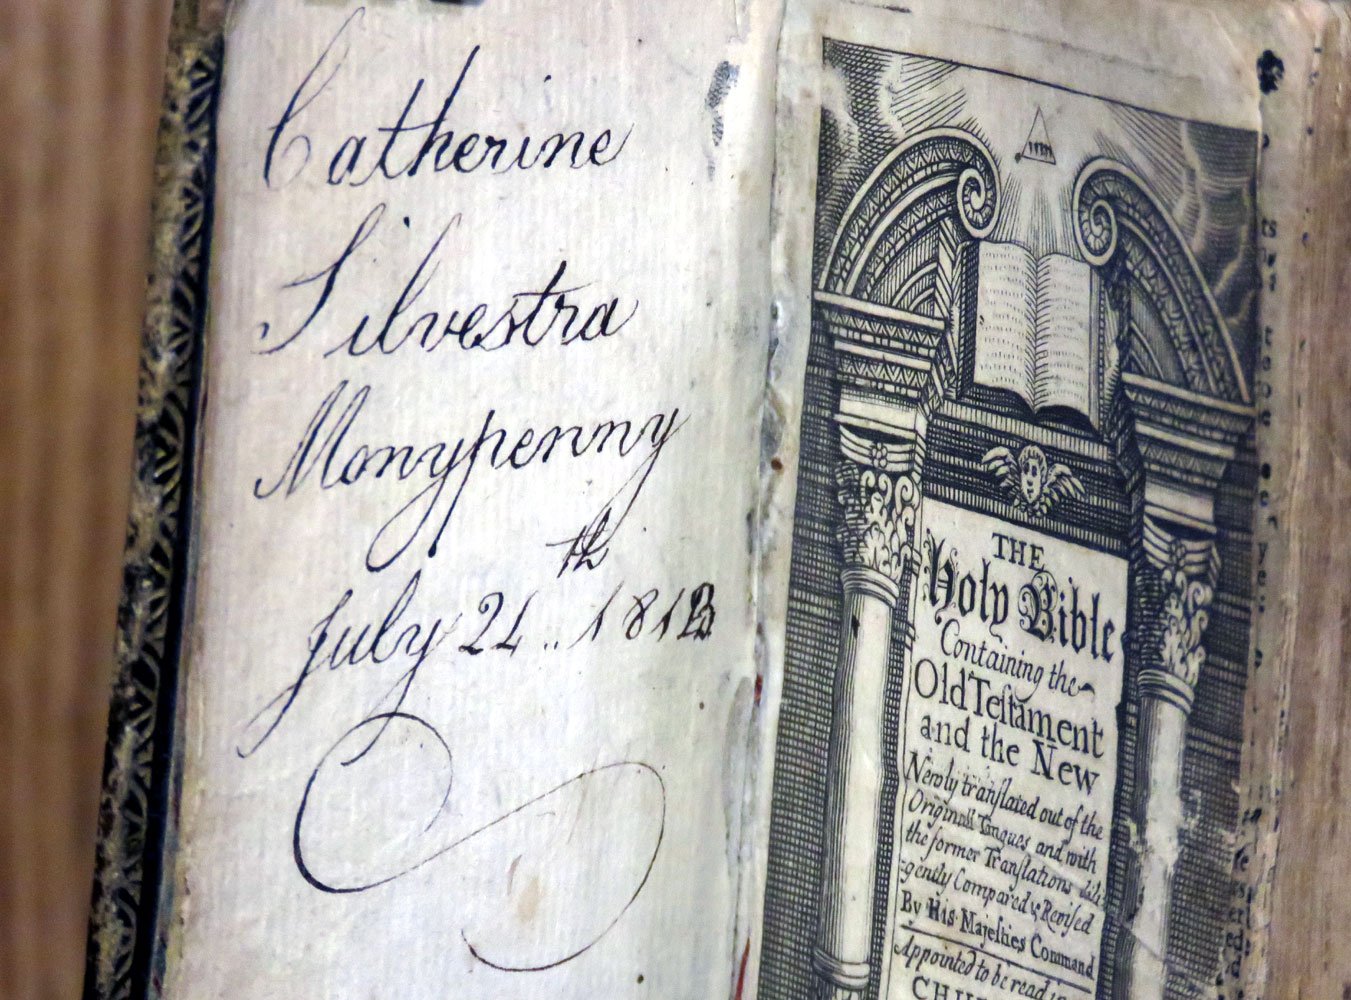 Catherine
Silvestra
Monypenny
July 21th 1813
THE
Holy Bible
Containing the
Old Teſtament
and the New
Newly tranſlated out of the
Originall Tongues and with
the former Tranſlations dili
gently Compared & Reviſed
By His Majeſties Command
Appointed to be read in